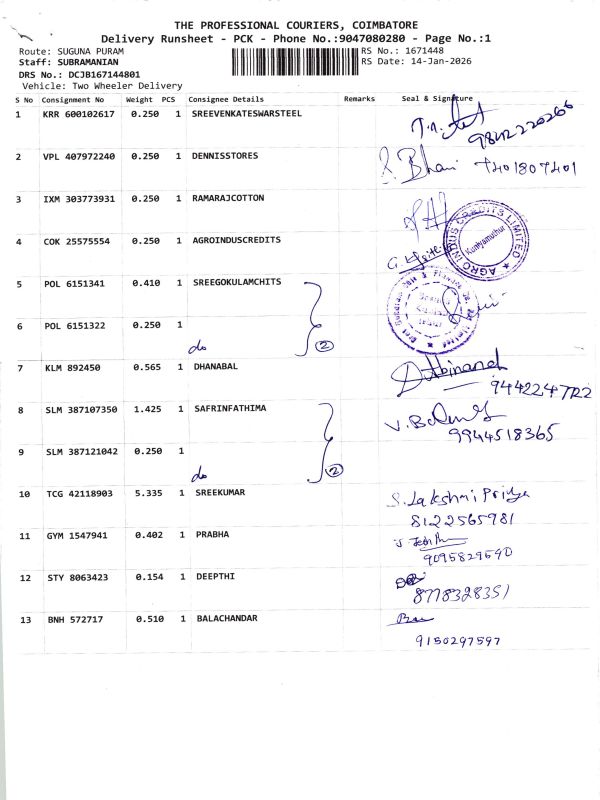 THE PROFESSIONAL COURIERS, COIMBATORE
Delivery Runsheet - PCK - Phone No.:9047080280 - Page No.:1
Route: SUGUNA PURAM RS No.: 1671448
Staff: SUBRAMANIAN RS Date: 14-Jan-2026
DRS No.: DCJB167144801
Vehicle: Two Wheeler Delivery
S No Consignment No Weight PCS Consignee Details Remarks Seal & Signature
1 KRR 600102617 0.250 1 SREEVENKATESWARSTEEL 9842220266
2 VPL 407972240 0.250 1 DENNISSTORES Bhani 7401807401
3 IXM 303773931 0.250 1 RAMARAJCOTTON
4 COK 25575554 0.250 1 AGROINDUSCREDITS AGROINDUS CREDITS LIMITED Kuniyamuthur
5 POL 6151341 0.410 1 SREEGOKULAMCHITS
6 POL 6151322 0.250 1 do 2
7 KLM 892450 0.565 1 DHANABAL
8 SLM 387107350 1.425 1 SAFRINFATHIMA
9944518365
9 SLM 387121042 0.250 1 do 2
10 TCG 42118903 5.335 1 SREEKUMAR S. Lakshmi Priya
8122565981
11 GYM 1547941 0.402 1 PRABHA
12 STY 8063423 0.154 1 DEEPTHI
8778328351
13 BNH 572717 0.510 1 BALACHANDAR
9150297597